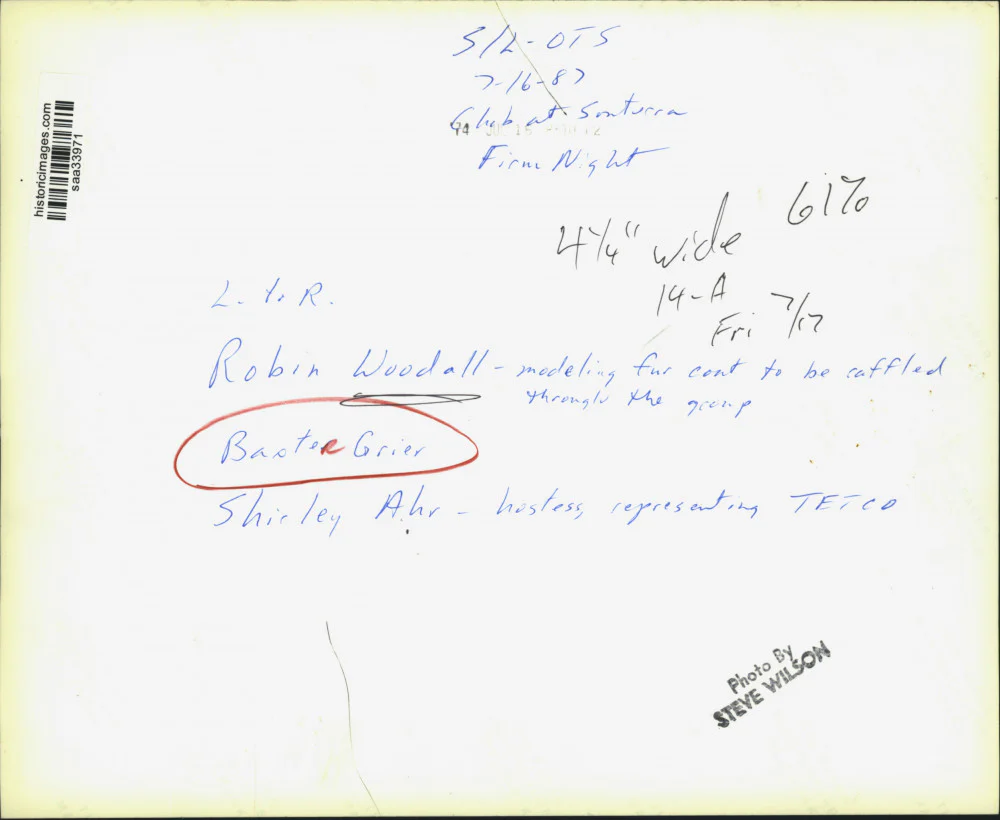 S/L-OTS
7-16-87
Club at Sonterra
Firm Night
61%
4 1/4" wide
14-A
Fri 7/17
L. to R.
Robin Woodall - modeling fur coat to be raffled
through the group
Baxter Grier
Shirley Ahr - hostess, representing TETCO
Photo By
STEVE WILSON
historicimages.com
saa33971